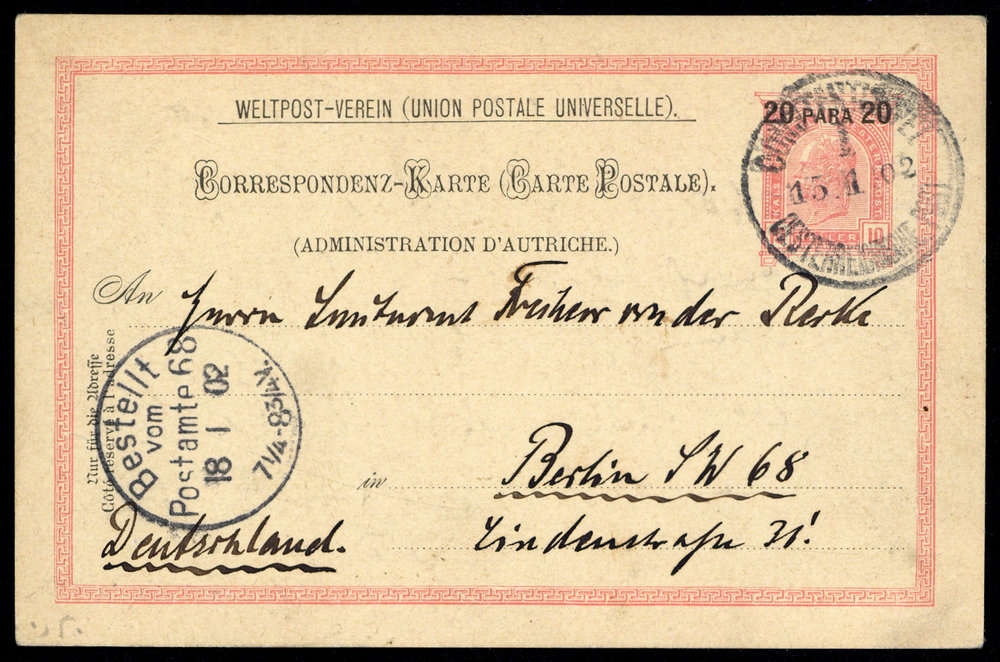 WELTPOST-VEREIN (UNION POSTALE UNIVERSELLE).
20 PARA 20
CORRESPONDENZ-KARTE (CARTE POSTALE).
15 1 02
10
(ADMINISTRATION D'AUTRICHE.)
An Herrn Freiherr von der
Nur für die Adresse
Côté réservé à l'adresse
Bestellt
vom
Postamte 68
18 1 02
7¼-8¾V.
in Berlin SW 68
Deutschland.
Lindenstraße 31!